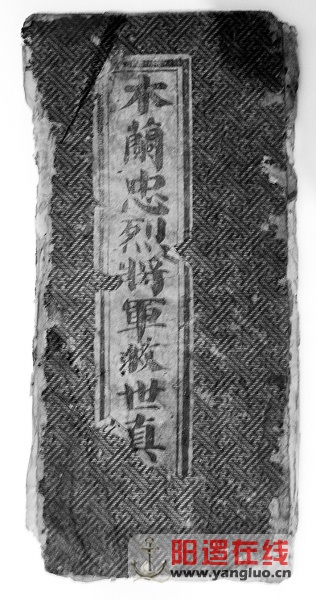 木蘭忠烈將軍救世真
阳逻在线
www.yangluo.cn